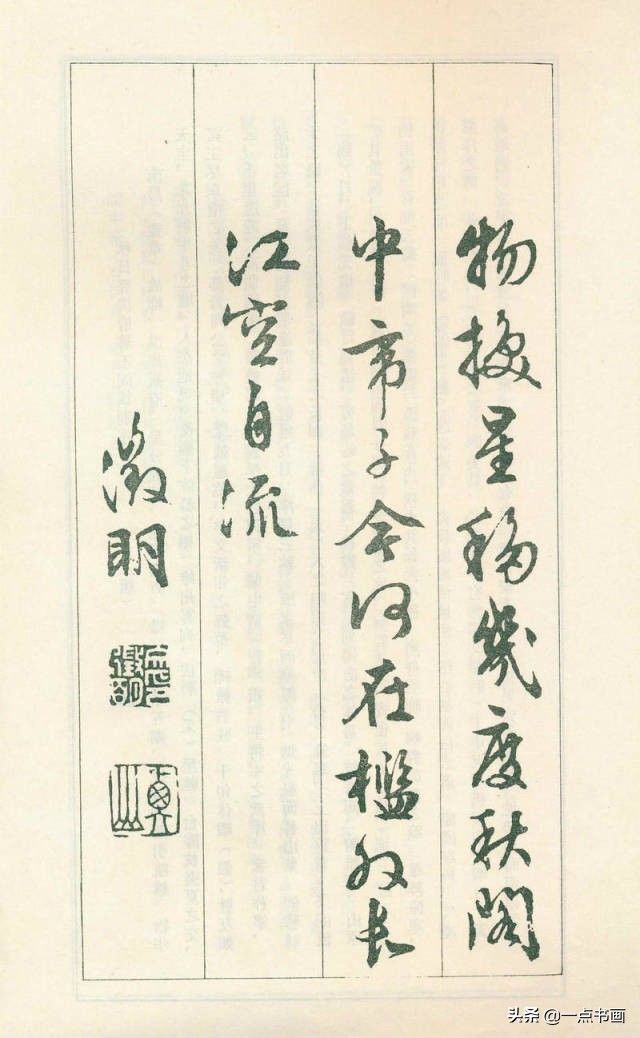 物换星移几度秋阁
中帝子今何在槛外长
江空自流
徵明
头条 @一点书画